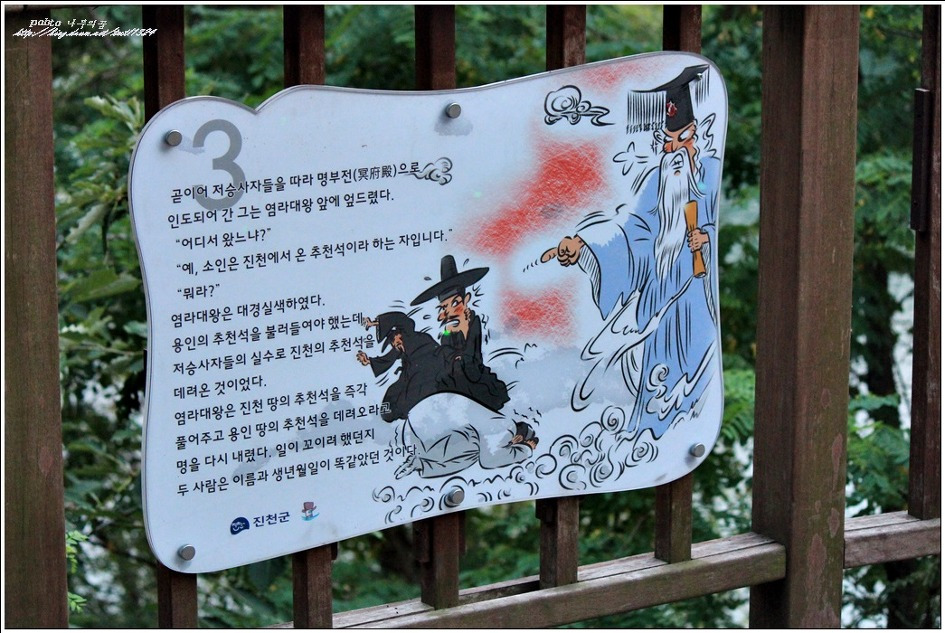 3
곧이어 저승사자들을 따라 명부전(冥府殿)으로
인도되어 간 그는 염라대왕 앞에 엎드렸다.
“어디서 왔느냐?”
“예, 소인은 진천에서 온 추천석이라 하는 자입니다.”
“뭐라?”
염라대왕은 대경실색하였다.
용인의 추천석을 불러들여야 했는데,
저승사자들의 실수로 진천의 추천석을
데려온 것이었다.
염라대왕은 진천 땅의 추천석을 즉각
풀어주고 용인 땅의 추천석을 데려오라고
명을 다시 내렸다. 일이 꼬이려 했던지
두 사람은 이름과 생년월일이 똑같았던 것이다.
진천군